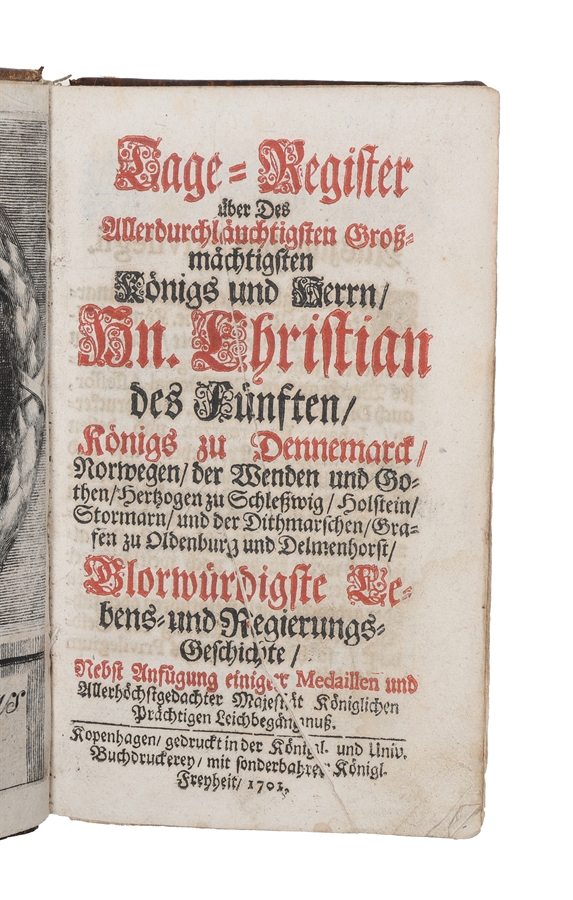 Tage=Register
über Des
Allerdurchläuchtigsten Groß=
mächtigsten
Königs und Herrn/
Hn. Christian
des Fünften/
Königs zu Dennemarck/
Norwegen/ der Wenden und Go=
then/ Hertzogen zu Schleßwig/ Holstein/
Stormarn/ und der Dithmarschen/ Gra=
fen zu Oldenburg und Delmenhorst/
Glorwürdigste Le=
bens= und Regierungs=
Geschichte/
Nebst Anfügung einiger Medaillen und
Allerhöchstgedachter Majestät Königlichen
Prächtigen Leichbegängnuß.
Kopenhagen/ gedruckt in der Königl. und Univ.
Buchdruckerey/ mit sonderbahrer Königl.
Freyheit/ 1701.